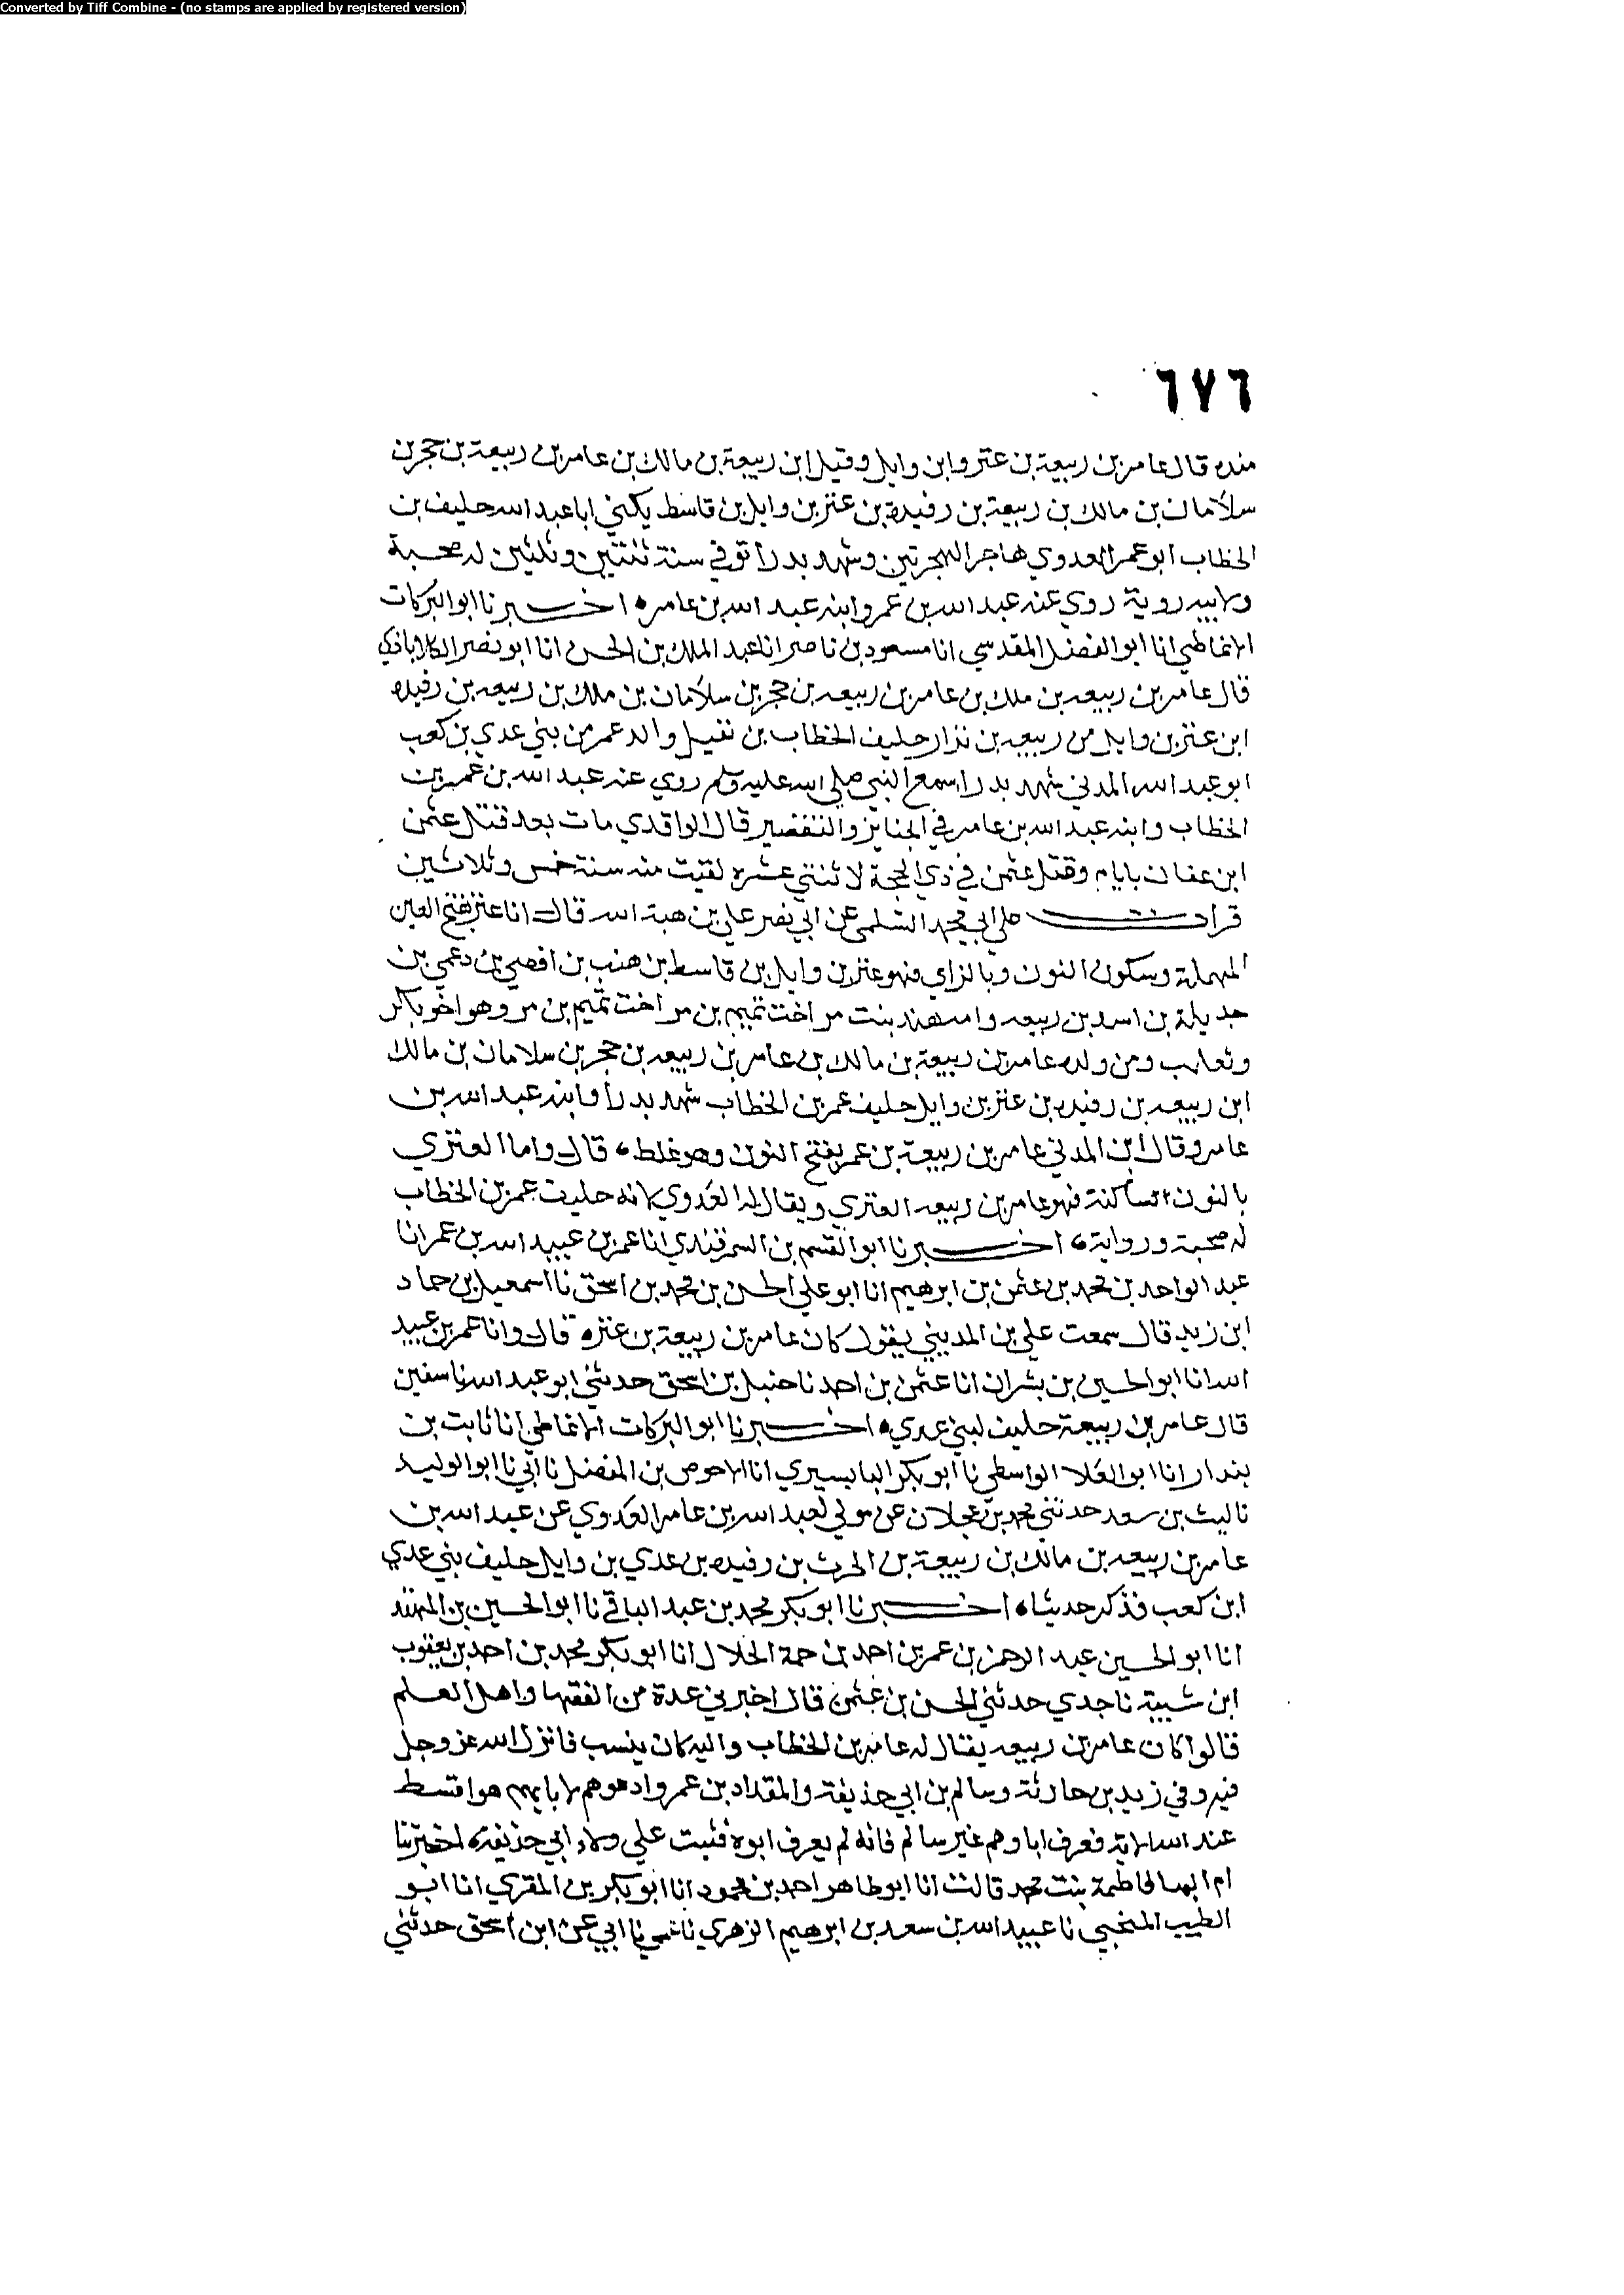 Converted by Tiff Combine - (no stamps are applied by registered version)
٦٧٦
منده قال عامر بن ربيعة بن عنز وابن وايل وقيل ابن ربيعة بن مالك بن عامر بن ربيعة بن حجر بن
سلامان بن مالك بن ربيعة بن رفيدة بن عنز بن وايل بن قاسط يكني ابا عبد الله حليف بن
الخطاب ابو عمر العدوي هاجر الهجرتين وشهد بدرا توفي سنة ثنتين وثلثين له صحبة
ولابيه روية روي عنه عبد الله بن عمر وابنه عبد الله بن عامر ه اخبرنا ابو البركات
الانماطي انا ابو الفضل المقدسي انا مسعود بن ناصر انا عبد الملك بن الحسن انا ابو نصر الكلاباذي
قال عامر بن ربيعه بن ملك بن عامر بن ربيعه بن حجر بن سلامان بن ملك بن ربيعه بن رفيده
ابن عنز بن وايل من ربيعه بن نزار حليف الخطاب بن نفيل والد عمر من بني عدي بن كعب
ابو عبد الله المدني شهد بدرا سمع النبي صلى الله عليه وسلم روي عنه عبد الله بن عمر بن
الخطاب وابنه عبد الله بن عامر في الجنايز والتقصير قال الواقدي مات بعد قتل عثمن
ابن عفان بايام وقتل عثمن في ذي الحجة لاثنتي عشره لقيت منه سنة خمس وثلاثين
قرات علي ابي محمد السلمي عن ابي نصر علي بن هبة الله قال اما عنز بفتح العين
المهملة وسكون النون وبالزاي فهو عنز بن وايل بن قاسط بن هنب بن افصي بن دعمي بن
جديلة بن اسد بن ربيعه وامه هند بنت مر اخت تميم بن مر اخت تميم بن مر وهو اخو بكر
وتعلب ومن ولده عامر بن ربيعة بن مالك بن عامر بن ربيعه بن حجر بن سلامان بن مالك
ابن ربيعه بن رفيده بن عنز بن وايل حليف عمر بن الخطاب شهد بدرا وابنه عبد الله بن
عامر وقال ابن المدني عامر بن ربيعة بن عمر بفتح النون وهو غلط ه قال واما العنزي
بالنون الساكنة فهو عامر بن ربيعه العنزي ويقال له العدوي لانه حليف عمر بن الخطاب
له صحبة ورواية ه اخبرنا ابو القسم بن السمرقندي انا عمر بن عبيد الله بن عمر انا
عبد الواحد بن محمد بن عثمن بن ابرهيم انا ابو علي الحسن بن محمد بن اسحق نا اسمعيل بن حماد
ابن زيد قال سمعت علي بن المديني يقول كان عامر بن ربيعة بن عنزه قال وانا عمر بن عبيد
الله انا ابو الحسين بن بشران انا عثمن بن احمد نا حنبل بن اسحق حدثني ابو عبد الله نا سفين
قال عامر بن ربيعة حليف لبني عدي ه اخبرنا ابو البركات الانماطي انا ثابت بن
بندار انا ابو العلا الواسطي نا ابو بكر البابسيري انا الاحوص بن المفضل نا ابي نا ابو الوليد
نا ليث بن سعد حدثني محمد بن عجلان عن مولي لعبد الله بن عامر العدوي عن عبد الله بن
عامر بن ربيعه بن مالك بن ربيعة بن الحرث بن رفيده بن عدي بن وايل حليف بني عدي
ابن كعب فذكر حديثا ه اخبرنا ابو بكر محمد بن عبد الباقي نا ابو الحسين بن المهتد
انا ابو الحسين عبد الرحمن بن عمر بن احمد بن حمة الخلال انا ابو بكر محمد بن احمد بن يعقوب
ابن شيبة نا جدي حدثني الحسن بن عثمن قال اخبرني عدة من الفقها واهل العلم
قالوا كان عامر بن ربيعه يقال له عامر بن الخطاب واليه كان ينسب فانزل الله عز وجل
فيه وفي زيد بن حارثة وسالم بن ابي حذيفة والمقداد بن عمرو ادعوهم لابايهم هو اقسط
عند الله الاية فعرف اباوهم غير سالم فانه لم يعرف ابوه فثبت علي ولاء ابي حذيفة ه اخبرتنا
ام البها فاطمة بنت محمد قالت انا ابو طاهر احمد بن محمود انا ابو بكر بن المقري انا ابو
الطيب المنبجي نا عبيد الله بن سعد بن ابرهيم الزهري نا عمي نا ابي عن ابن اسحق حدثني